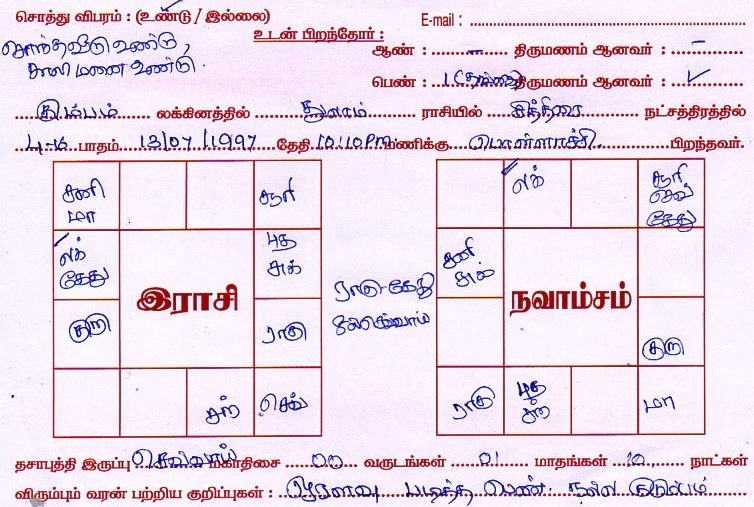 சொத்து விபரம் : (உண்டு / இல்லை)
E-mail :
சொந்தவீடு உண்டு,
காலி மனை உண்டு.
உடன் பிறந்தோர் :
ஆண் : – திருமணம் ஆனவர் : –
பெண் : 1 திருமணம் ஆனவர் : ✓
கும்பம் லக்கினத்தில் துலாம் ராசியில் சித்திரை நட்சத்திரத்தில்
4-ம் பாதம் 13/07/1997 தேதி 10:10 PM மணிக்கு பொள்ளாச்சி பிறந்தவர்.
சனி
மா
சூரி
லக்
கேது
புத
சுக்
குரு
ராகு
சந்
செவ்
இராசி
ராகு-கேது
செவ்வாய்
லக்
சூரி
செவ்
கேது
சனி
சுக்
நவாம்சம்
குரு
ராகு
புத
சந்
மா
தசாபுத்தி இருப்பு செவ்வாய் மகாதிசை 00 வருடங்கள் 01 மாதங்கள் 10 நாட்கள்
விரும்பும் வரன் பற்றிய குறிப்புகள் : ஓரளவு படித்த பெண். நல்ல குடும்பம்